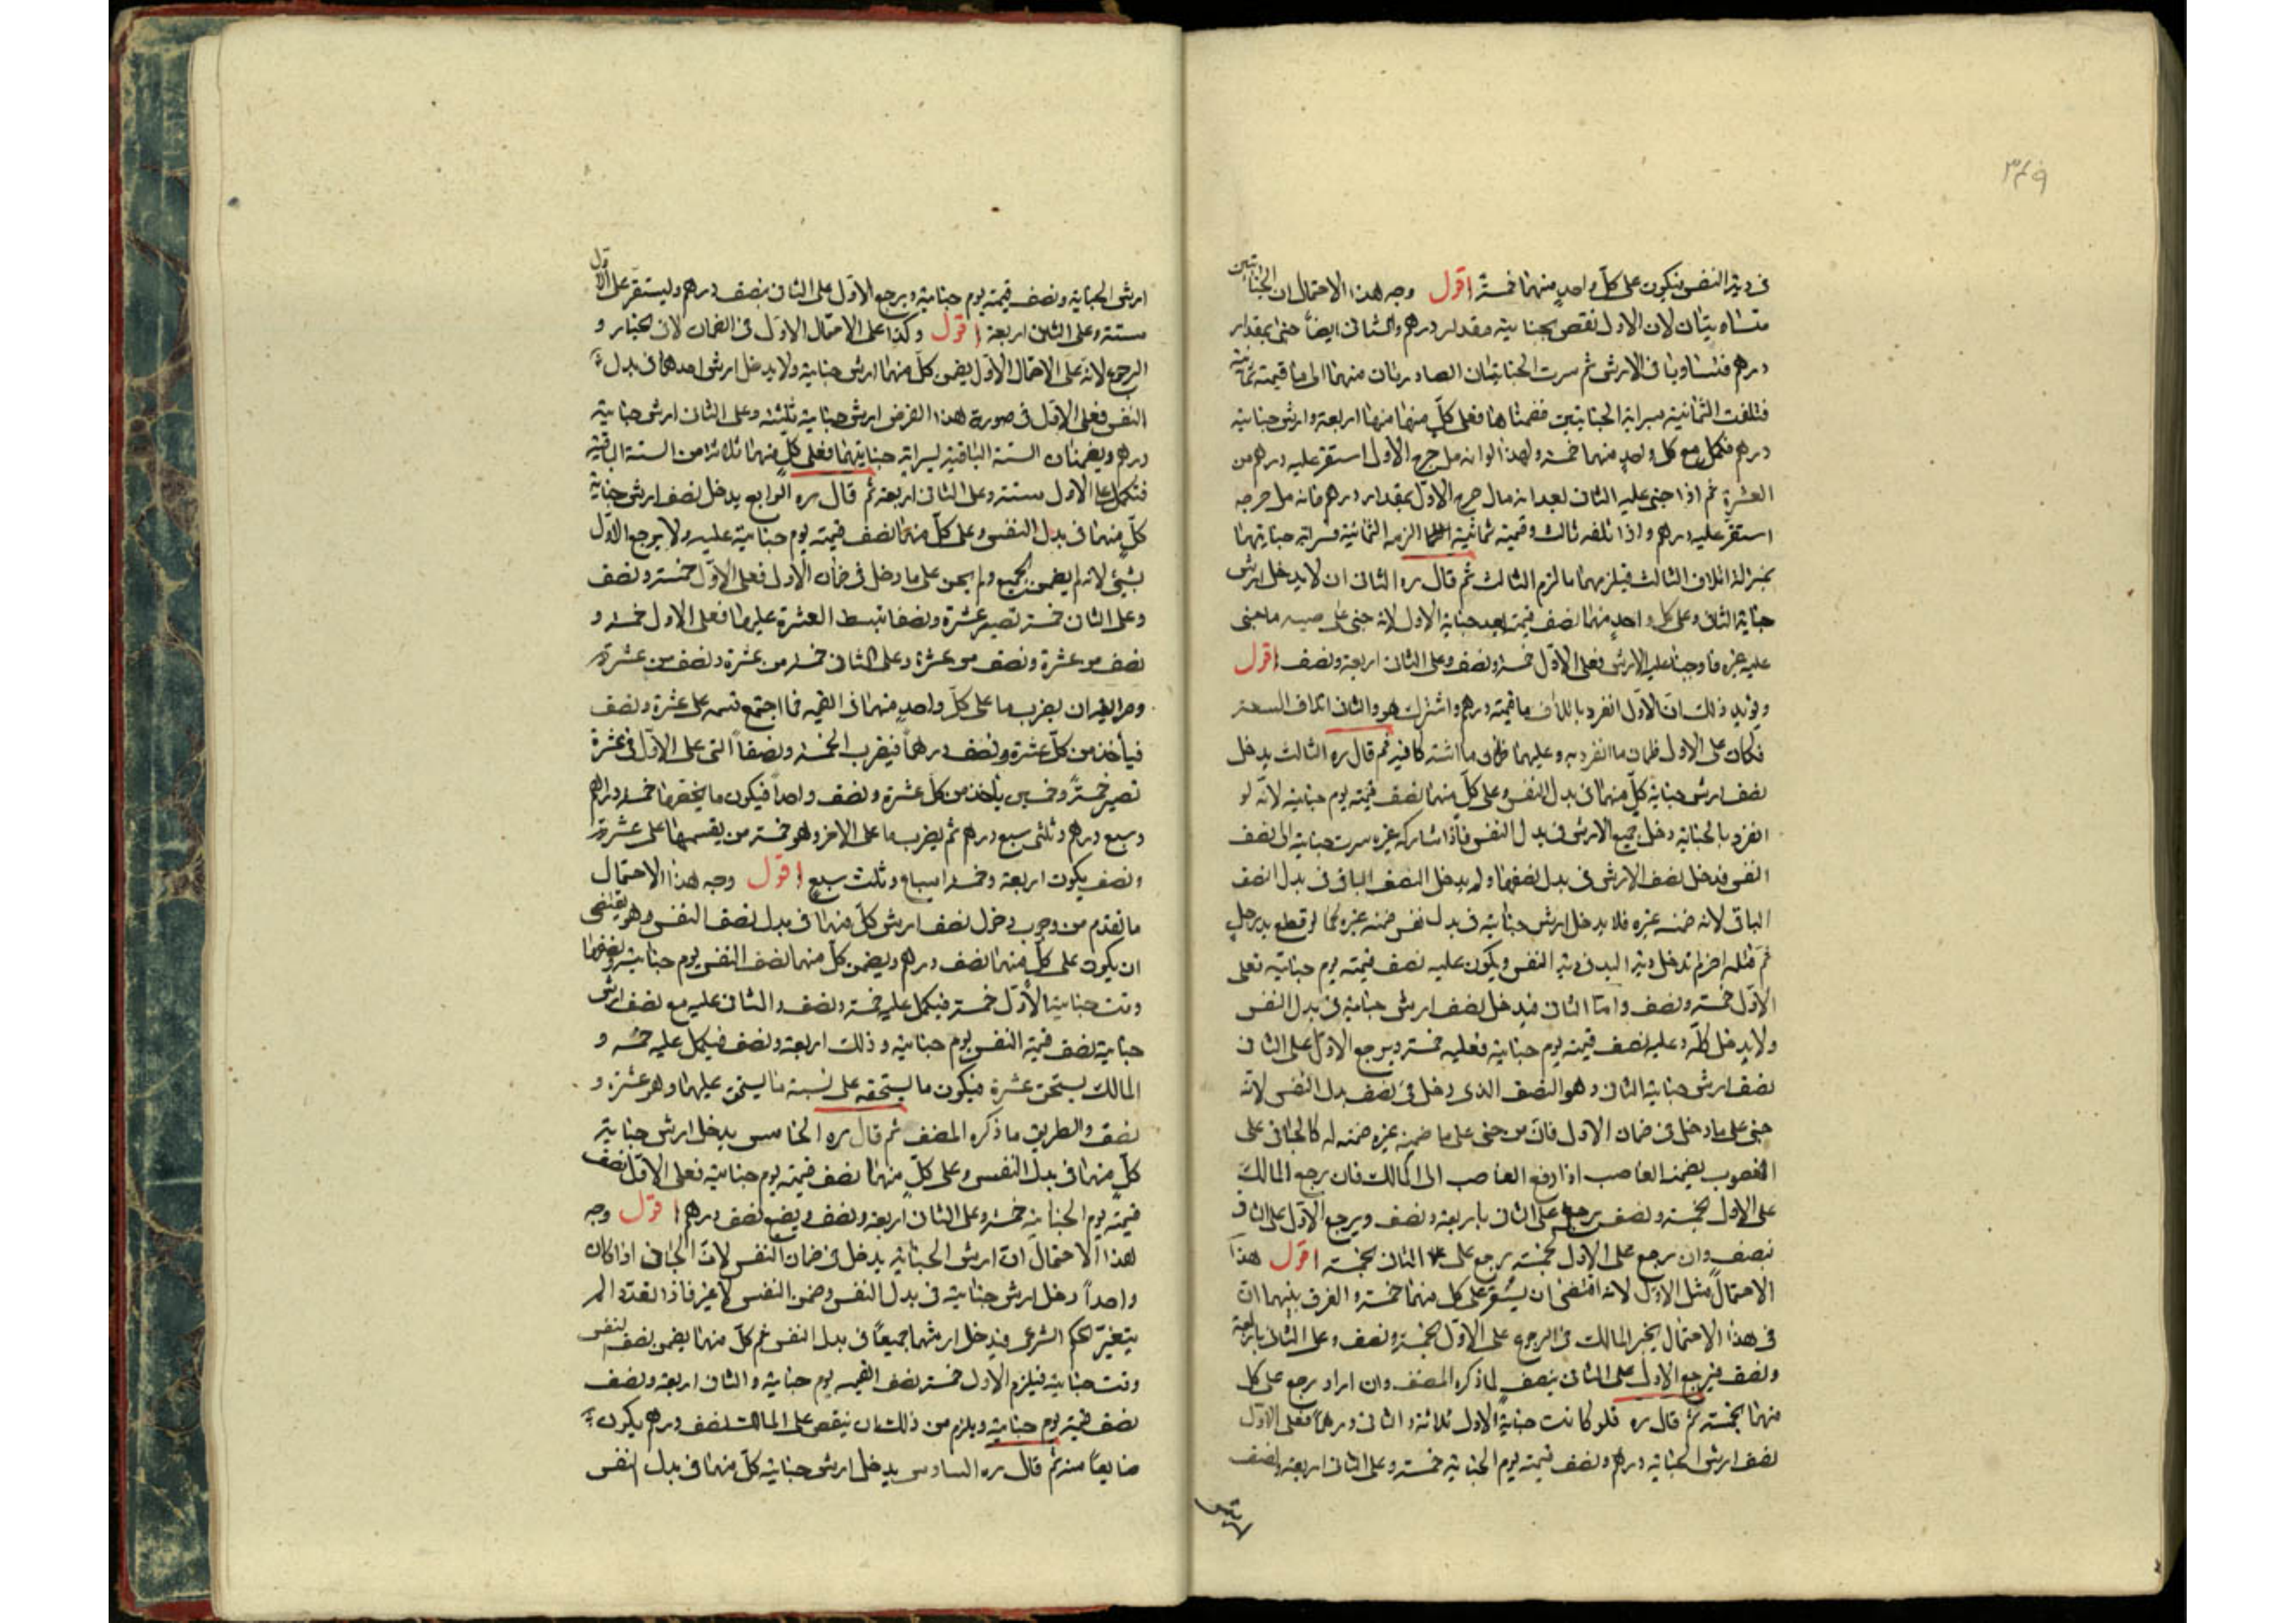 ٣٤٩
في دية النفس فيكون على كل واحد منهما خمسة اقول وجه هذا الاحتمال ان الجنايتين
متساويتان لان الاول نقص بجنايته مقدار درهم والثاني ايضا جنى بمقدار
درهم فتساويا في الارش ثم سرت الجنايتان الصادرتان منهما الى ما قيمته ثمانية
فتلفت الثمانية بسراية الجنايتين فضمناها فعلى كل منهما منها اربعة وارش جنايته
درهم فكمل مع كل واحد منهما خمسة ولهذا لو انه مل جرح الاول استقر عليه درهم من
العشرة ثم اذا جنى عليه الثاني بعد اندمال جرح الاول بمقدار درهم فاندمل جرحه
استقر عليه درهم واذا تلفه ثالث وقيمته ثمانية الزمه الثمانية فسراية جنايتهما
بمنزلة اتلاف الثالث فيلزمهما ما لزم الثالث ثم قال ره الثاني ان لا يدخل ارش
جناية الثاني وعلى كل واحد منهما نصف قيمته بعد جناية الاول لانه جنى على صيد ما جنى
عليه غيره فاوجبنا عليه الارش فعلى الاول خمسة ونصف وعلى الثاني اربعة ونصف اقول
ويؤيد ذلك ان الاول انفرد باتلاف ما قيمته درهم واشترك هو والثاني اتلاف التسعة
فكان على الاول ضمان ما انفرد به وعليهما ضمان ما اشتركا فيه ثم قال ره الثالث يدخل
نصف ارش جناية كل منهما في بدل النفس وعلى كل منهما نصف قيمته يوم جنايته لانه لو
انفرد بالجناية دخل جميع الارش في بدل النفس فاذا شاركه غيره سرت جنايته الى نصف
النفس فدخل نصف الارش في بدل نصفها ولم يدخل النصف الباقي في بدل النصف
الباقي لانه ضمنه غيره فلا يدخل ارش جنايته في بدل نفس ضمنه غيره كما لو قطع يد رجل
ثم قتله اخر لم تدخل دية اليد في دية النفس ويكون عليه نصف قيمته يوم جنايته فعلى
الاول خمسة ونصف واما الثاني فيدخل نصف ارش جنايته في بدل النفس
ولا يدخل كله وعليه نصف قيمته يوم جنايته فعليه خمسة ويرجع الاول على الثاني
نصف ارش جناية الثاني وهو النصف الذي دخل في نصف بدل النفس لانه
جنى على ما دخل في ضمان الاول فان من جنى على ما ضمنه غيره ضمنه له كالجاني على
المغصوب يضمنه الغاصب اذا دفع الغاصب الى المالك فان رجع المالك
على الاول بخمسة ونصف رجع على الثاني باربعة ونصف ويرجع الاول على الثاني
بنصف وان رجع على الاول بخمسة رجع على الثاني بخمسة اقول هذا
الاحتمال مثل الاول لانه اقتضى ان يستقر على كل منهما خمسة والفرق بينهما ان
في هذا الاحتمال يخير المالك في الرجوع على الاول بخمسة ونصف وعلى الثاني باربعة
ونصف فيرجع الاول على الثاني بنصف لما ذكره المصنف وان اراد رجع على كل
منهما بخمسة ثم قال ره فلو كانت جناية الاول ثلاثة والثاني درهما فعلى الاول
نصف ارش الجناية درهم ونصف قيمته يوم الجناية خمسة وعلى الثاني اربعة نصف
ارش الجناية ونصف قيمته يوم جنايته ويرجع الاول على الثاني بنصف درهم وليستقر على الاول
ستة وعلى الثاني اربعة اقول وكذا على الاحتمال الاول في الضمان لا في الخيار و
الرجوع لانه على الاحتمال الاول يضمن كل منهما ارش جنايته ولا يدخل ارش احدهما في بدل
النفس فعلى الاول في صورة هذا الفرض ارش جنايته ثلثه وعلى الثاني ارش جنايته
درهم ويضمنان الستة الباقية لسراية جنايتهما فعلى كل منهما ثلاثة من الستة الباقية
فتكمل على الاول ستة وعلى الثاني اربعة ثم قال ره الرابع يدخل نصف ارش جناية
كل منهما في بدل النفس وعلى كل منهما نصف قيمته يوم جنايته عليه ولا يرجع الاول
بشيء لانه لم يضمن الجميع ولم يجن على ما دخل في ضمان الاول فعلى الاول خمسة ونصف
وعلى الثاني خمسة تصير عشرة ونصفا تبسط العشرة عليهما فعلى الاول خمسة و
نصف من عشرة ونصف من عشرة وعلى الثاني خمسة من عشرة ونصف من عشرة
ان يضرب ما على كل واحد منهما في القيمة فما اجتمع قسمه على عشرة ونصف
فيأخذ من كل عشرة ونصف درهما فيضرب الخمسة ونصفا التي على الاول في عشرة
تصير خمسة وخمسين يأخذ من كل عشرة ونصف واحدا فيكون ما يخصها خمسة دراهم
وسبع درهم وثلثي سبع درهم ثم يضرب ما على الاخر وهو خمسة من يقسمها على عشرة
ونصف يكون اربعة وخمسة اسباع وثلث سبع اقول وجه هذا الاحتمال
ما تقدم من وجوب دخول نصف ارش كل منهما في بدل نصف النفس وهو يقتضي
ان يكون على كل منهما نصف درهم ويضمن كل منهما نصف النفس يوم جنايته ونصفها
وقت جناية الاول خمسة فيكمل عليه خمسة ونصف والثاني عليه مع نصف ارش
جنايته نصف قيمة النفس يوم جنايته وذلك اربعة ونصف فيكمل عليه خمسة و
المالك يستحق عشرة فيكون ما يستحقه على نسبة ما يستحق عليهما وهو عشرة و
نصف والطريق ما ذكره المصنف ثم قال ره الخامس يدخل ارش جناية
كل منهما في بدل النفس وعلى كل منهما نصف قيمته يوم جنايته فعلى الاول نصف
قيمته يوم الجناية خمسة وعلى الثاني اربعة ونصف ويضيع نصف درهم اقول وجه
هذا الاحتمال ان ارش الجناية يدخل في ضمان النفس لان الجاني اذا كان
واحدا دخل ارش جنايته في بدل النفس وضمن النفس لا غير فاذا تعدد لم
يتغير الحكم الشرعي فيدخل ارشهما جميعا في بدل النفس ثم كل منهما يضمن نصف النفس
وقت جنايته فيلزم الاول خمسة نصف القيمة يوم جنايته والثاني اربعة ونصف
نصف قيمته يوم جنايته ويلزم من ذلك ان ينقص على المالك نصف درهم يكون
ضايعا منه ثم قال ره السادس يدخل ارش جناية كل منهما في بدل النفس